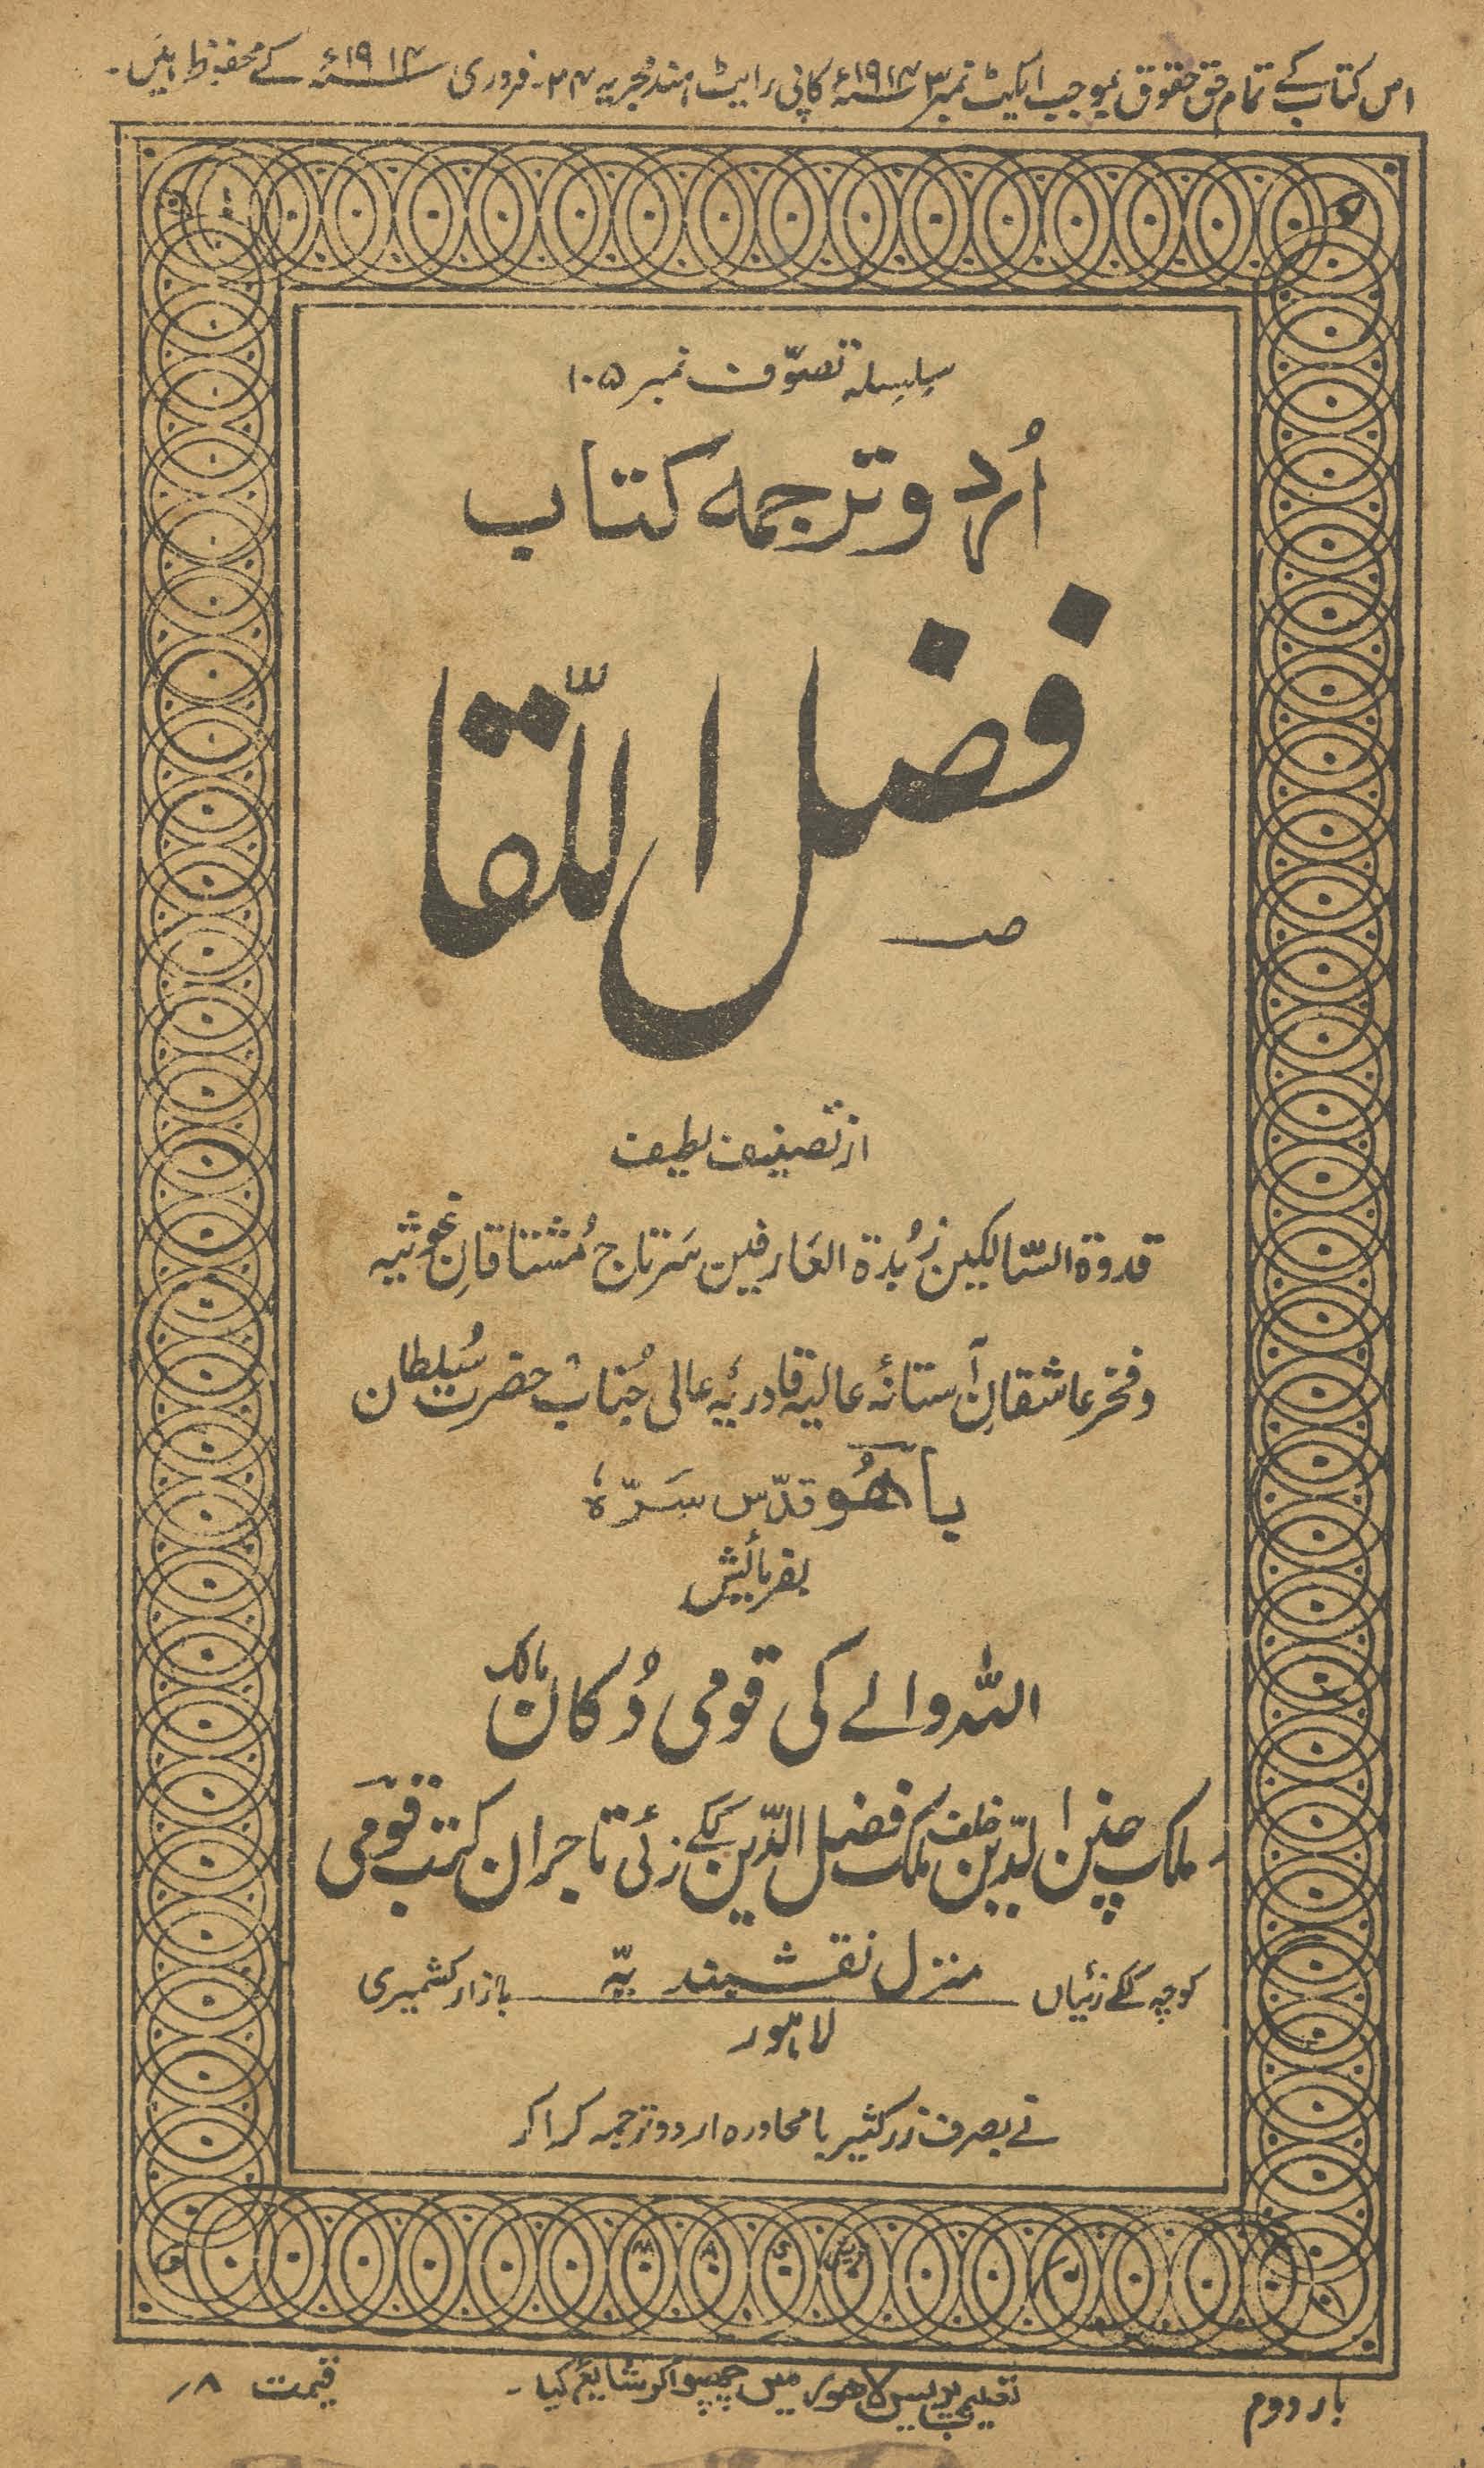 اس کتاب کے تمام حق حقوق بموجب ایکٹ نمبر ۳ ۱۹۱۴ء کاپی رایٹ ہند مجریہ ۲۴۔ فروری ۱۹۱۴ء کے محفوظ ہیں۔
سلسلہ تصوّف نمبر ۱۰۵
اُردو ترجمہ کتاب
فضل اللّقا
از تصنیف لطیف
قدوة السّالکین زُبدة العَارفین سَرتاج مُشتاقانِ غوثیہ
و فخر عاشقانِ آستانۂ عالیہ قادریّہ عالی جناب حضرت سُلطان
باھُو قدّس سَرّہٗ
بفرمائیش
اللہ والے کی قومی دُکان مالک
ملک چنن الدّین خلف ملک فضل الدّین ککے زئی تاجران کتب قومی
کوچہ ککے زئیاں منزل نقشبندیّہ بازار کشمیری
لاہور
نے بصرف زر کثیر با محاورہ اردو ترجمہ کرا کر
بار دوم
پریس لاھور میں چھپوا کر شایع کیا۔
قیمت ۸؍